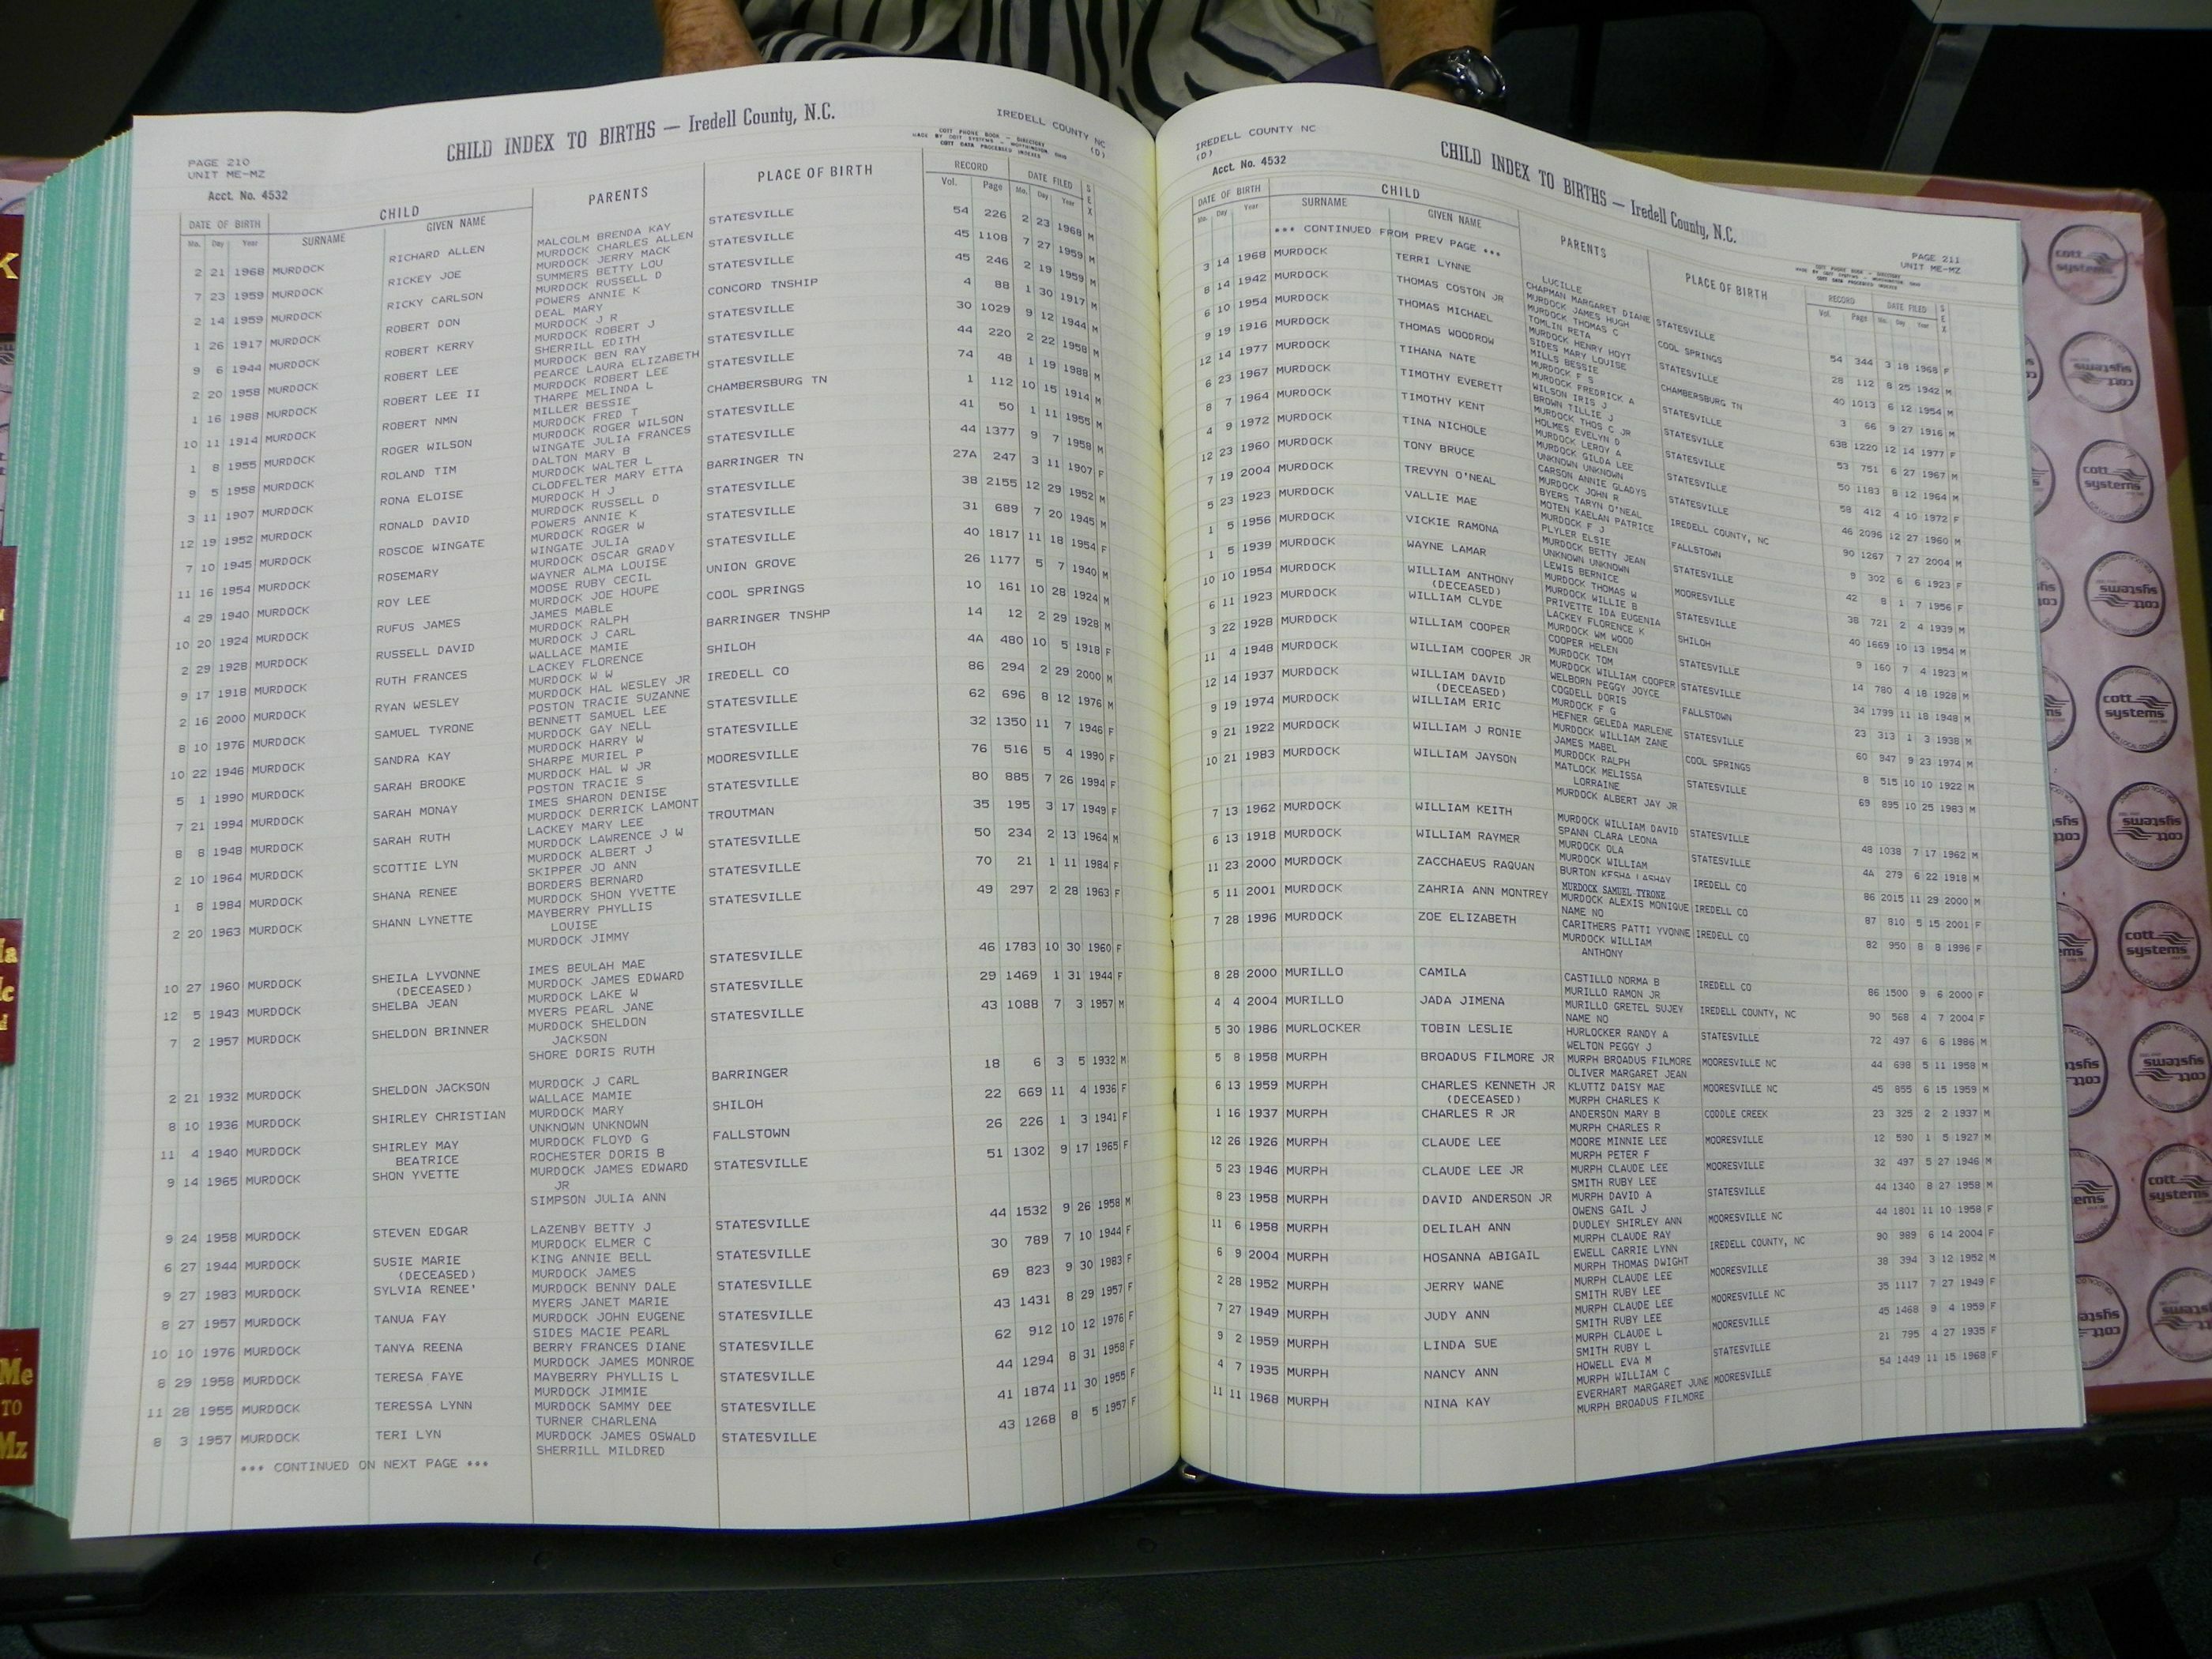 CHILD INDEX TO BIRTHS — Iredell County, N.C.
IREDELL COUNTY NC
(D)
COTT PHONE BOOK - DIRECTORY
MADE BY COTT SYSTEMS - WORTHINGTON, OHIO
COTT DATA PROCESSED INDEXES
PAGE 210
UNIT ME-MZ
Acct. No. 4532
DATE OF BIRTH CHILD PARENTS PLACE OF BIRTH RECORD DATE FILED SEX
Mo. Day Year SURNAME GIVEN NAME Vol. Page Mo. Day Year
2 21 1968 MURDOCK RICHARD ALLEN MALCOLM BRENDA KAY STATESVILLE 54 226 2 23 1968 M
MURDOCK CHARLES ALLEN
7 23 1959 MURDOCK RICKEY JOE MURDOCK JERRY MACK STATESVILLE 45 1108 7 27 1959 M
SUMMERS BETTY LOU
2 14 1959 MURDOCK RICKY CARLSON MURDOCK RUSSELL D STATESVILLE 45 246 2 19 1959 M
POWERS ANNIE K
1 26 1917 MURDOCK ROBERT DON DEAL MARY CONCORD TNSHIP 4 88 1 30 1917 M
MURDOCK J R
9 6 1944 MURDOCK ROBERT KERRY MURDOCK ROBERT J STATESVILLE 30 1029 9 12 1944 M
SHERRILL EDITH
2 20 1958 MURDOCK ROBERT LEE MURDOCK BEN RAY STATESVILLE 44 220 2 22 1958 M
PEARCE LAURA ELIZABETH
1 16 1988 MURDOCK ROBERT LEE II MURDOCK ROBERT LEE STATESVILLE 74 48 1 19 1988 M
THARPE MELINDA L
10 11 1914 MURDOCK ROBERT NMN MILLER BESSIE CHAMBERSBURG TN 1 112 10 15 1914 M
MURDOCK FRED T
1 8 1955 MURDOCK ROGER WILSON MURDOCK ROGER WILSON STATESVILLE 41 50 1 11 1955 M
WINGATE JULIA FRANCES
9 5 1958 MURDOCK ROLAND TIM DALTON MARY B STATESVILLE 44 1377 9 7 1958 M
MURDOCK WALTER L
3 11 1907 MURDOCK RONA ELOISE CLODFELTER MARY ETTA BARRINGER TN 27A 247 3 11 1907 F
MURDOCK H J
12 19 1952 MURDOCK RONALD DAVID MURDOCK RUSSELL D STATESVILLE 38 2155 12 29 1952 M
POWERS ANNIE K
7 10 1945 MURDOCK ROSCOE WINGATE MURDOCK ROGER W STATESVILLE 31 689 7 20 1945 M
WINGATE JULIA
11 16 1954 MURDOCK ROSEMARY MURDOCK OSCAR GRADY STATESVILLE 40 1817 11 18 1954 F
WAYNER ALMA LOUISE
4 29 1940 MURDOCK ROY LEE MOOSE RUBY CECIL UNION GROVE 26 1177 5 7 1940 M
MURDOCK JOE HOUPE
10 20 1924 MURDOCK RUFUS JAMES JAMES MABLE COOL SPRINGS 10 161 10 28 1924 M
MURDOCK RALPH
2 29 1928 MURDOCK RUSSELL DAVID MURDOCK J CARL BARRINGER TNSHP 14 12 2 29 1928 M
WALLACE MAMIE
9 17 1918 MURDOCK RUTH FRANCES LACKEY FLORENCE SHILOH 4A 480 10 5 1918 F
MURDOCK W W
2 16 2000 MURDOCK RYAN WESLEY MURDOCK HAL WESLEY JR IREDELL CO 86 294 2 29 2000 M
POSTON TRACIE SUZANNE
8 10 1976 MURDOCK SAMUEL TYRONE BENNETT SAMUEL LEE STATESVILLE 62 696 8 12 1976 M
MURDOCK GAY NELL
10 22 1946 MURDOCK SANDRA KAY MURDOCK HARRY W STATESVILLE 32 1350 11 7 1946 F
SHARPE MURIEL P
5 1 1990 MURDOCK SARAH BROOKE MURDOCK HAL W JR MOORESVILLE 76 516 5 4 1990 F
POSTON TRACIE S
7 21 1994 MURDOCK SARAH MONAY IMES SHARON DENISE STATESVILLE 80 885 7 26 1994 F
MURDOCK DERRICK LAMONT
8 8 1948 MURDOCK SARAH RUTH LACKEY MARY LEE TROUTMAN 35 195 3 17 1949 F
MURDOCK LAWRENCE J W
2 10 1964 MURDOCK SCOTTIE LYN MURDOCK ALBERT J STATESVILLE 50 234 2 13 1964 M
SKIPPER JO ANN
1 8 1984 MURDOCK SHANA RENEE BORDERS BERNARD STATESVILLE 70 21 1 11 1984 F
MURDOCK SHON YVETTE
2 20 1963 MURDOCK SHANN LYNETTE MAYBERRY PHYLLIS STATESVILLE 49 297 2 28 1963 F
LOUISE
MURDOCK JIMMY
10 27 1960 MURDOCK SHEILA LYVONNE IMES BEULAH MAE STATESVILLE 46 1783 10 30 1960 F
(DECEASED) MURDOCK JAMES EDWARD
12 5 1943 MURDOCK SHELBA JEAN MURDOCK LAKE W STATESVILLE 29 1469 1 31 1944 F
MYERS PEARL JANE
7 2 1957 MURDOCK SHELDON BRINNER MURDOCK SHELDON STATESVILLE 43 1088 7 3 1957 M
JACKSON
SHORE DORIS RUTH
2 21 1932 MURDOCK SHELDON JACKSON MURDOCK J CARL BARRINGER 18 6 3 5 1932 M
WALLACE MAMIE
8 10 1936 MURDOCK SHIRLEY CHRISTIAN MURDOCK MARY SHILOH 22 669 11 4 1936 F
UNKNOWN UNKNOWN
11 4 1940 MURDOCK SHIRLEY MAY MURDOCK FLOYD G FALLSTOWN 26 226 1 3 1941 F
BEATRICE ROCHESTER DORIS B
9 14 1965 MURDOCK SHON YVETTE MURDOCK JAMES EDWARD STATESVILLE 51 1302 9 17 1965 F
JR
SIMPSON JULIA ANN
9 24 1958 MURDOCK STEVEN EDGAR LAZENBY BETTY J STATESVILLE 44 1532 9 26 1958 M
MURDOCK ELMER C
6 27 1944 MURDOCK SUSIE MARIE KING ANNIE BELL STATESVILLE 30 789 7 10 1944 F
(DECEASED) MURDOCK JAMES
9 27 1983 MURDOCK SYLVIA RENEE' MURDOCK BENNY DALE STATESVILLE 69 823 9 30 1983 F
MYERS JANET MARIE
8 27 1957 MURDOCK TANUA FAY MURDOCK JOHN EUGENE STATESVILLE 43 1431 8 29 1957 F
SIDES MACIE PEARL
10 10 1976 MURDOCK TANYA REENA BERRY FRANCES DIANE STATESVILLE 62 912 10 12 1976 F
MURDOCK JAMES MONROE
8 29 1958 MURDOCK TERESA FAYE MAYBERRY PHYLLIS L STATESVILLE 44 1294 8 31 1958 F
MURDOCK JIMMIE
11 28 1955 MURDOCK TERESSA LYNN MURDOCK SAMMY DEE STATESVILLE 41 1874 11 30 1955 F
TURNER CHARLENA
8 3 1957 MURDOCK TERI LYN MURDOCK JAMES OSWALD STATESVILLE 43 1268 8 5 1957 F
SHERRILL MILDRED
*** CONTINUED ON NEXT PAGE ***
IREDELL COUNTY NC
(D)
CHILD INDEX TO BIRTHS — Iredell County, N.C.
Acct. No. 4532
PAGE 211
UNIT ME-MZ
COTT PHONE BOOK - DIRECTORY
MADE BY COTT SYSTEMS - WORTHINGTON, OHIO
COTT DATA PROCESSED INDEXES
DATE OF BIRTH CHILD PARENTS PLACE OF BIRTH RECORD DATE FILED SEX
Mo. Day Year SURNAME GIVEN NAME Vol. Page Mo. Day Year
*** CONTINUED FROM PREV PAGE ***
LUCILLE
3 14 1968 MURDOCK TERRI LYNNE CHAPMAN MARGARET DIANE STATESVILLE 54 344 3 18 1968 F
MURDOCK JAMES HUGH
8 14 1942 MURDOCK THOMAS COSTON JR MURDOCK THOMAS C COOL SPRINGS 28 112 8 25 1942 M
TOMLIN RETA
6 10 1954 MURDOCK THOMAS MICHAEL MURDOCK HENRY HOYT STATESVILLE 40 1013 6 12 1954 M
SIDES MARY LOUISE
9 19 1916 MURDOCK THOMAS WOODROW MILLS BESSIE CHAMBERSBURG TN 3 66 9 27 1916 M
MURDOCK F S
12 14 1977 MURDOCK TIHANA NATE MURDOCK FREDRICK A STATESVILLE 63B 1220 12 14 1977 F
WILSON IRIS J
6 23 1967 MURDOCK TIMOTHY EVERETT BROWN TILLIE J STATESVILLE 53 751 6 27 1967 M
MURDOCK THOS C JR
8 7 1964 MURDOCK TIMOTHY KENT HOLMES EVELYN D STATESVILLE 50 1183 8 12 1964 M
MURDOCK LEROY A
4 9 1972 MURDOCK TINA NICHOLE MURDOCK GILDA LEE STATESVILLE 58 412 4 10 1972 F
UNKNOWN UNKNOWN
12 23 1960 MURDOCK TONY BRUCE CARSON ANNIE GLADYS STATESVILLE 46 2096 12 27 1960 M
MURDOCK JOHN R
7 19 2004 MURDOCK TREVYN O'NEAL BYERS TARYN O'NEAL IREDELL COUNTY, NC 90 1267 7 27 2004 M
MOTEN KAELAN PATRICE
5 23 1923 MURDOCK VALLIE MAE MURDOCK F J FALLSTOWN 9 302 6 6 1923 F
PLYLER ELSIE
1 5 1956 MURDOCK VICKIE RAMONA MURDOCK BETTY JEAN STATESVILLE 42 8 1 7 1956 F
UNKNOWN UNKNOWN
1 5 1939 MURDOCK WAYNE LAMAR LEWIS BERNICE MOORESVILLE 38 721 2 4 1939 M
MURDOCK THOMAS W
10 10 1954 MURDOCK WILLIAM ANTHONY MURDOCK WILLIE B STATESVILLE 40 1669 10 13 1954 M
(DECEASED) PRIVETTE IDA EUGENIA
6 11 1923 MURDOCK WILLIAM CLYDE LACKEY FLORENCE K SHILOH 9 160 7 4 1923 M
MURDOCK WM WOOD
3 22 1928 MURDOCK WILLIAM COOPER COOPER HELEN STATESVILLE 14 780 4 18 1928 M
MURDOCK TOM
11 4 1948 MURDOCK WILLIAM COOPER JR MURDOCK WILLIAM COOPER STATESVILLE 34 1799 11 18 1948 M
WELBORN PEGGY JOYCE
12 14 1937 MURDOCK WILLIAM DAVID COGDELL DORIS FALLSTOWN 23 313 1 3 1938 M
(DECEASED) MURDOCK F G
9 19 1974 MURDOCK WILLIAM ERIC HEFNER GELEDA MARLENE STATESVILLE 60 947 9 23 1974 M
MURDOCK WILLIAM ZANE
9 21 1922 MURDOCK WILLIAM J RONIE JAMES MABEL COOL SPRINGS 8 515 10 10 1922 M
MURDOCK RALPH
10 21 1983 MURDOCK WILLIAM JAYSON MATLOCK MELISSA STATESVILLE 69 895 10 25 1983 M
LORRAINE
MURDOCK ALBERT JAY JR
7 13 1962 MURDOCK WILLIAM KEITH MURDOCK WILLIAM DAVID STATESVILLE 48 1038 7 17 1962 M
SPANN CLARA LEONA
6 13 1918 MURDOCK WILLIAM RAYMER MURDOCK OLA STATESVILLE 4A 279 6 22 1918 M
MURDOCK WILLIAM
11 23 2000 MURDOCK ZACCHAEUS RAQUAN BURTON KESHA LASHAY IREDELL CO 86 2015 11 29 2000 M
MURDOCK SAMUEL TYRONE
5 11 2001 MURDOCK ZAHRIA ANN MONTREY MURDOCK ALEXIS MONIQUE IREDELL CO 87 810 5 15 2001 F
NAME NO
7 28 1996 MURDOCK ZOE ELIZABETH CARITHERS PATTI YVONNE IREDELL CO 82 950 8 8 1996 F
MURDOCK WILLIAM
ANTHONY
8 28 2000 MURILLO CAMILA CASTILLO NORMA B IREDELL CO 86 1500 9 6 2000 F
MURILLO RAMON JR
4 4 2004 MURILLO JADA JIMENA MURILLO GRETEL SUJEY IREDELL COUNTY, NC 90 568 4 7 2004 F
NAME NO
5 30 1986 MURLOCKER TOBIN LESLIE HURLOCKER RANDY A STATESVILLE 72 497 6 6 1986 M
WELTON PEGGY J
5 8 1958 MURPH BROADUS FILMORE JR MURPH BROADUS FILMORE MOORESVILLE NC 44 698 5 11 1958 M
OLIVER MARGARET JEAN
6 13 1959 MURPH CHARLES KENNETH JR KLUTTZ DAISY MAE MOORESVILLE NC 45 855 6 15 1959 M
(DECEASED) MURPH CHARLES K
1 16 1937 MURPH CHARLES R JR ANDERSON MARY B CODDLE CREEK 23 325 2 2 1937 M
MURPH CHARLES R
12 26 1926 MURPH CLAUDE LEE MOORE MINNIE LEE MOORESVILLE 12 590 1 5 1927 M
MURPH PETER F
5 23 1946 MURPH CLAUDE LEE JR MURPH CLAUDE LEE MOORESVILLE 32 497 5 27 1946 M
SMITH RUBY LEE
8 23 1958 MURPH DAVID ANDERSON JR MURPH DAVID A STATESVILLE 44 1340 8 27 1958 M
OWENS GAIL J
11 6 1958 MURPH DELILAH ANN DUDLEY SHIRLEY ANN MOORESVILLE NC 44 1801 11 10 1958 F
MURPH CLAUDE RAY
6 9 2004 MURPH HOSANNA ABIGAIL EWELL CARRIE LYNN IREDELL COUNTY, NC 90 989 6 14 2004 F
MURPH THOMAS DWIGHT
2 28 1952 MURPH JERRY WANE MURPH CLAUDE LEE MOORESVILLE 38 394 3 12 1952 M
SMITH RUBY LEE
7 27 1949 MURPH JUDY ANN MURPH CLAUDE LEE MOORESVILLE NC 35 1117 7 27 1949 F
SMITH RUBY LEE
9 2 1959 MURPH LINDA SUE MURPH CLAUDE L MOORESVILLE 45 1468 9 4 1959 F
SMITH RUBY L
4 7 1935 MURPH NANCY ANN HOWELL EVA M STATESVILLE 21 795 4 27 1935 F
MURPH WILLIAM C
11 11 1968 MURPH NINA KAY EVERHART MARGARET JUNE MOORESVILLE 54 1449 11 15 1968 F
MURPH BROADUS FILMORE
cott
systems
Me
TO
Mz